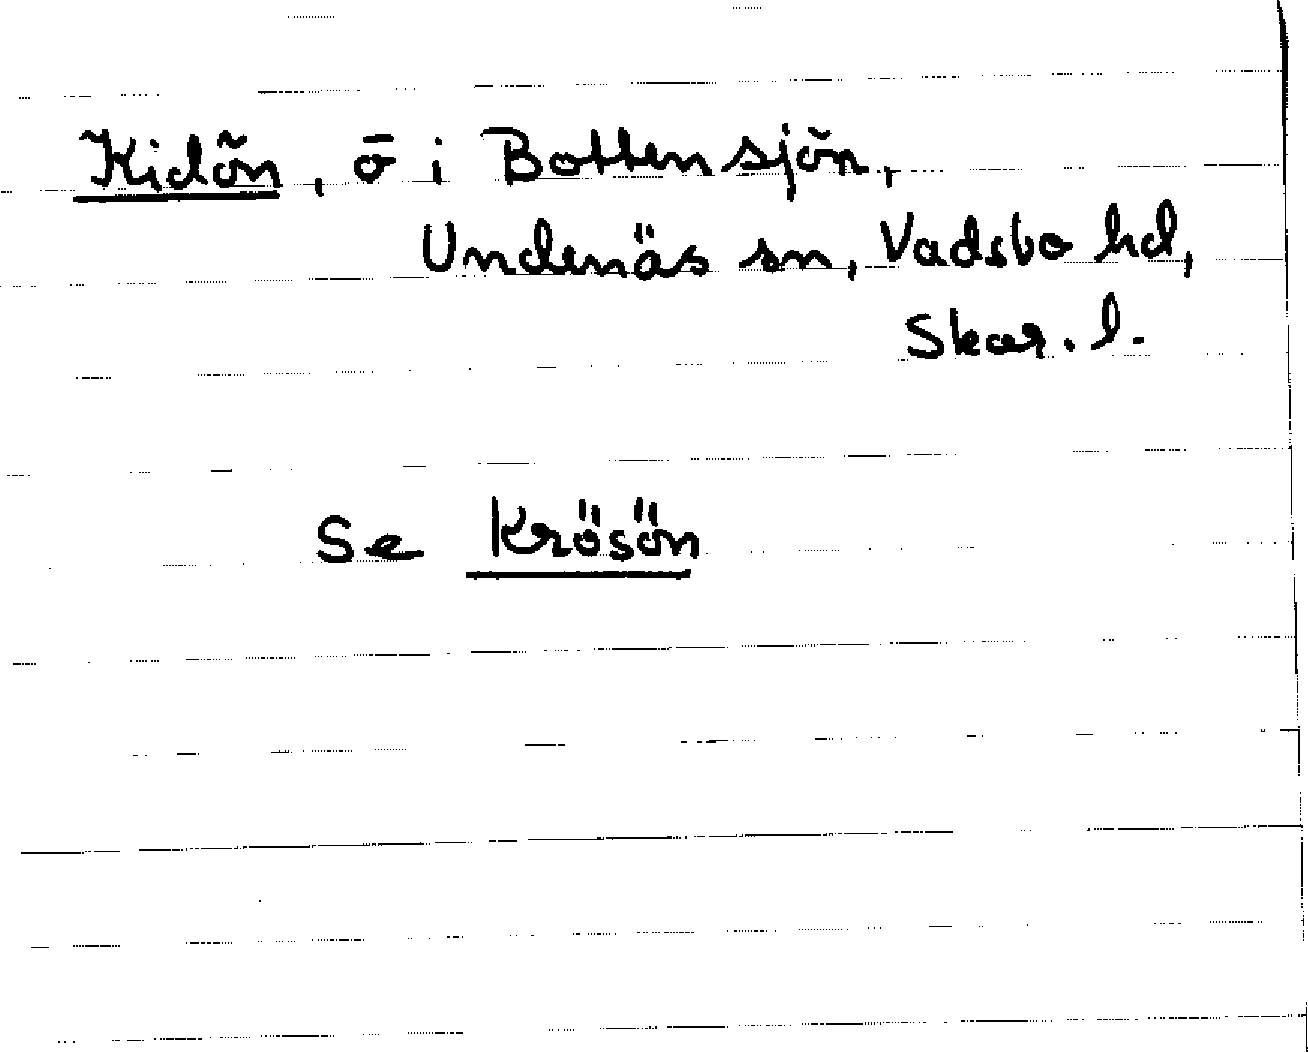 Kidön, ö i Bottensjön,
Undenäs sn, Vadsbo hd,
Skar. l.
Se Krösön